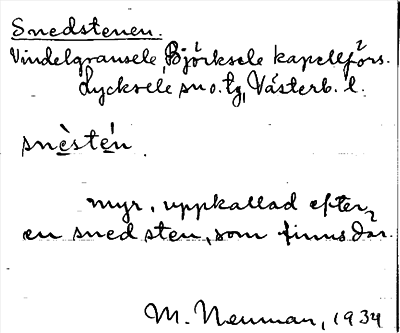 Snedstenen.
Vindelgransele, Björksele kapellförs.
Lycksele sn o. tg, Västerb. l.
snèsté̀n.
myr, uppkallad efter
en sned sten, som finns där.
M. Neuman, 1934